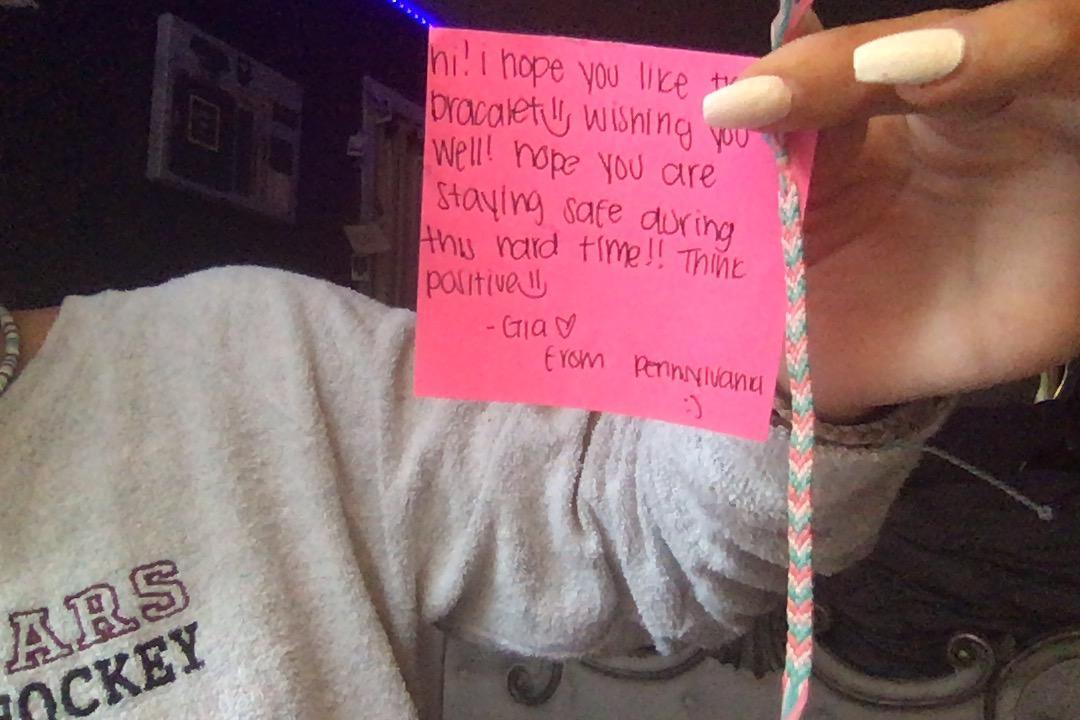 hi! i hope you like
bracalet!! wishing you
well! hope you are
staying safe during
this hard time!! Think
positive!!
- Gia ♡
From Pennnylvania
:)
ARS
HOCKEY